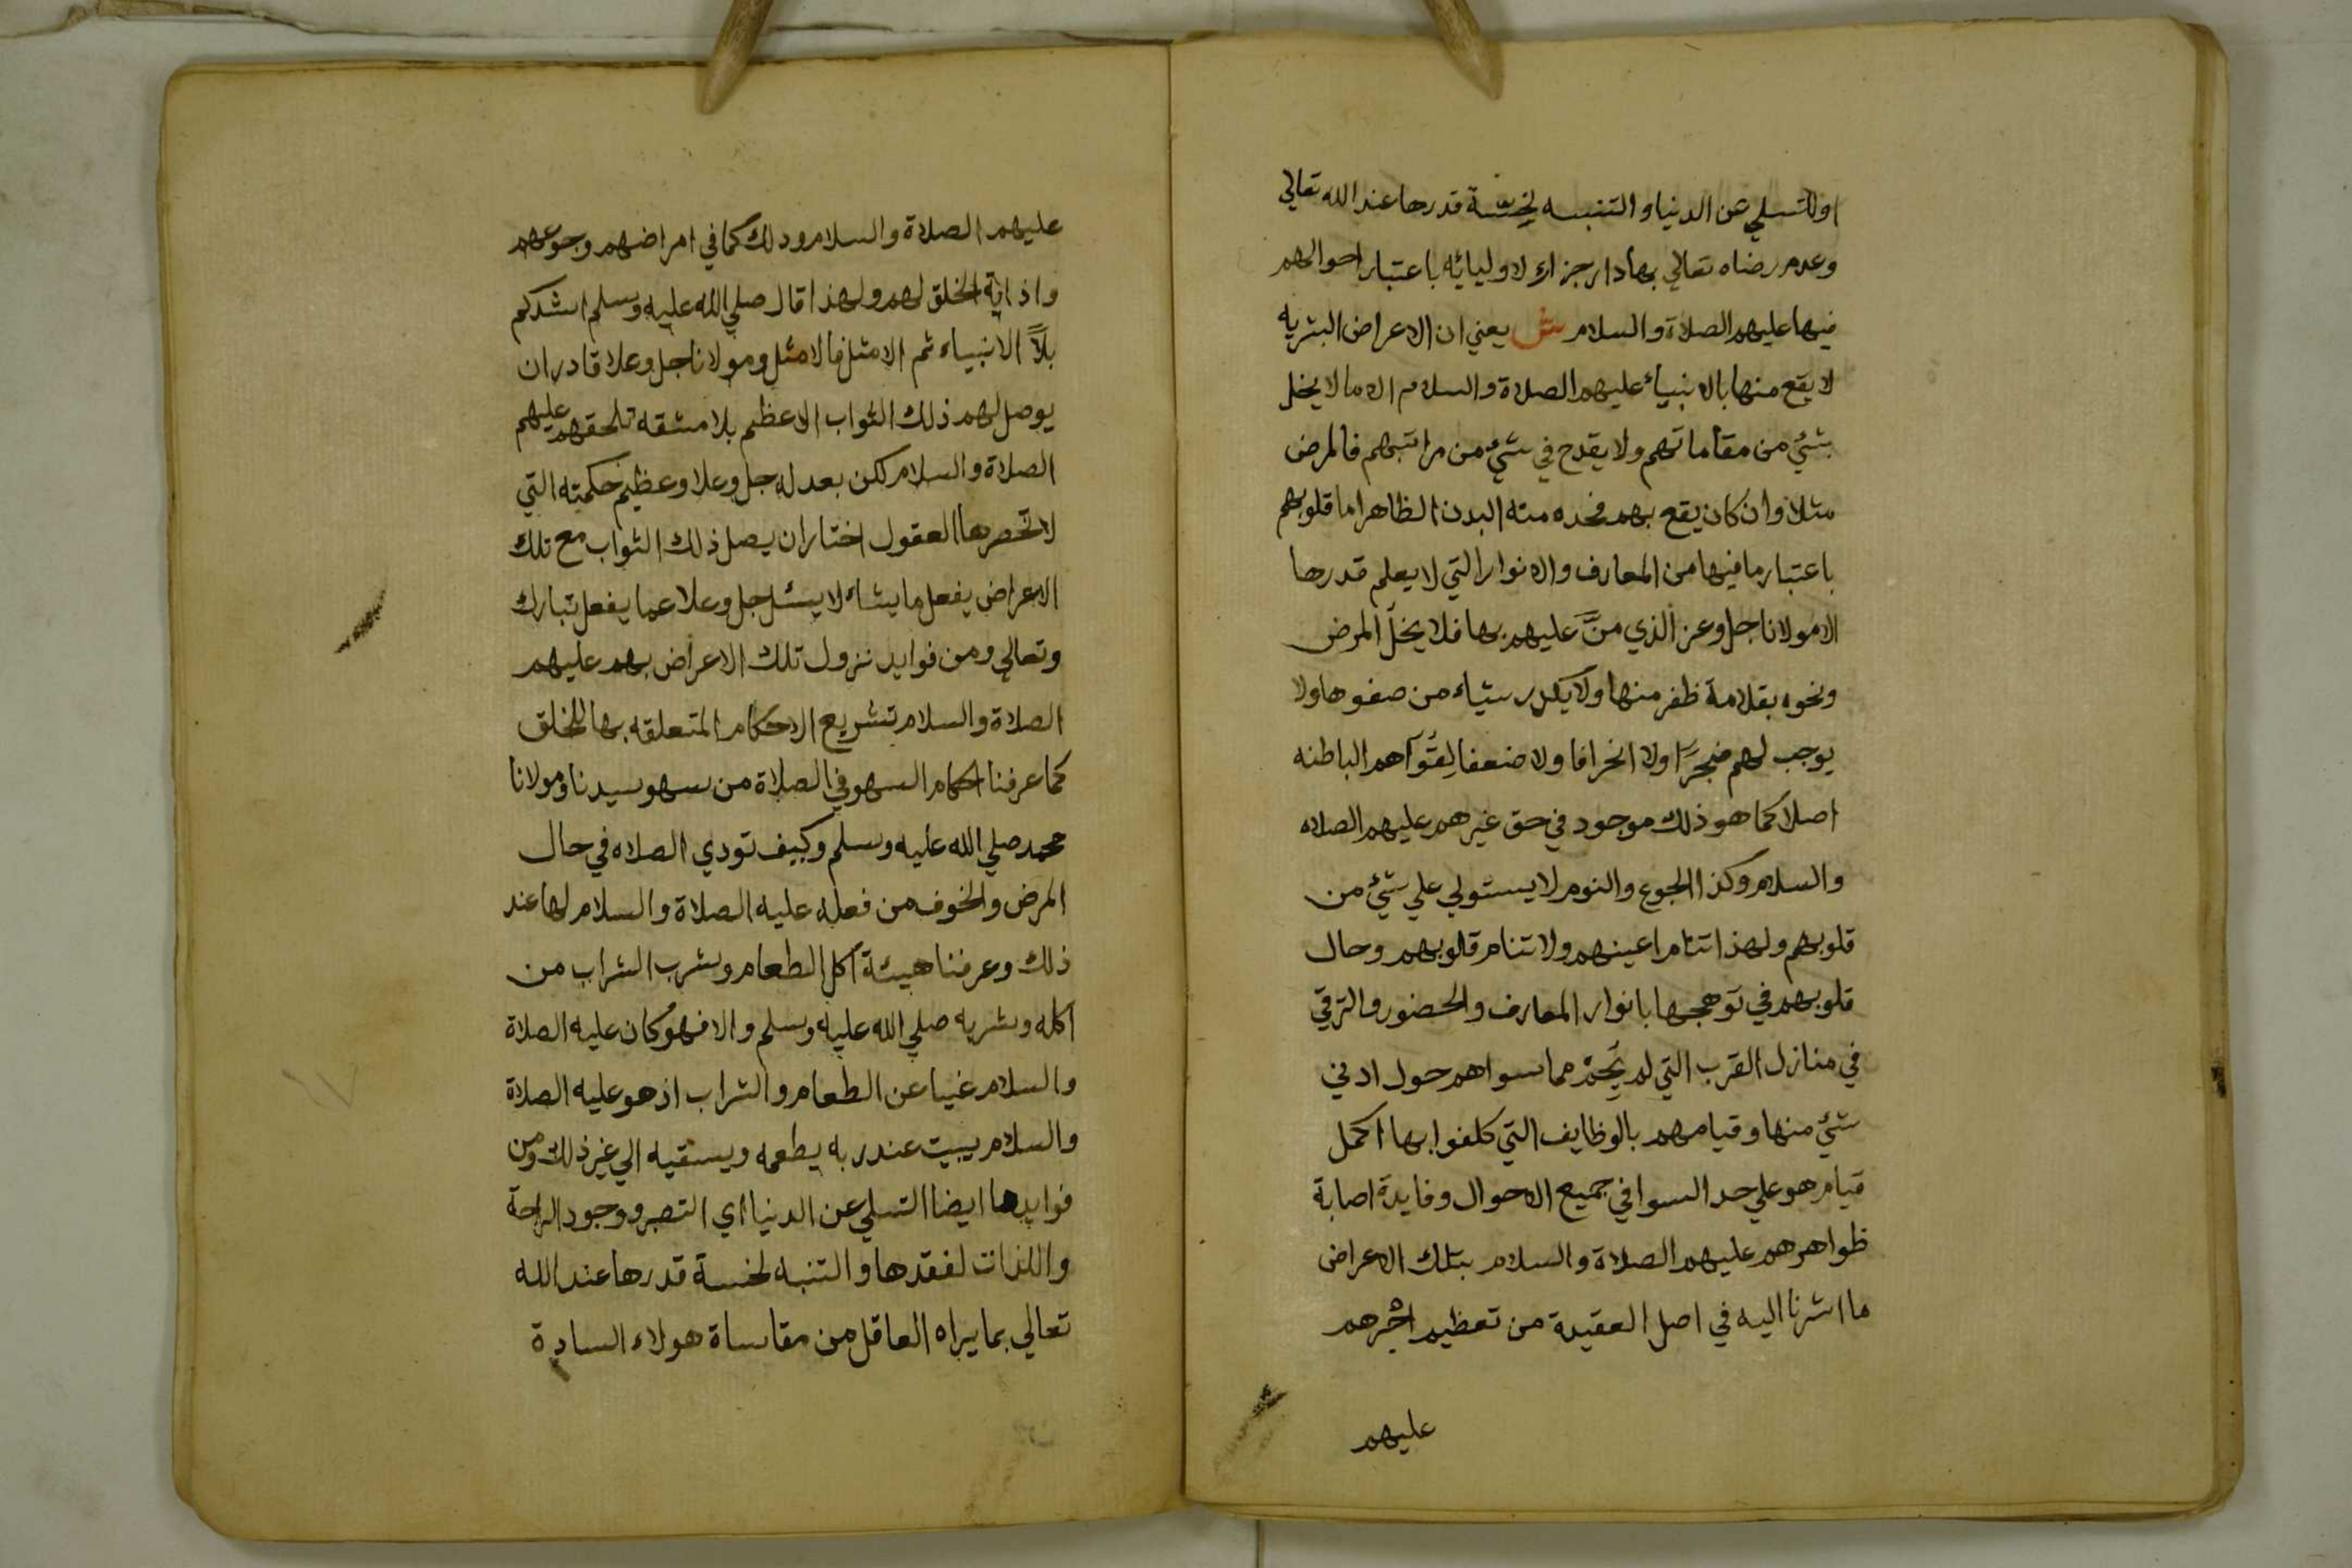 اوللتسلي عن الدنيا والتنبيه لخسّة قدرها عند الله تعالي
وعدم رضاه تعالي بها دار جزاء لاوليائه باعتبار احوالهم
فيها عليهم الصلاة والسلام ش يعني ان الاعراض البشريه
لا يقع منها بالانبياء عليهم الصلاة والسلام الا ما لا يخل
بشئ من مقاماتهم ولا يقدح في شئ من مراتبهم فالمرض
مثلا وان كان يقع بهم فحده منه البدن الظاهر اما قلوبهم
باعتبار ما فيها من المعارف والانوار التي لا يعلم قدرها
الا مولانا جل وعز الذي منَّ عليهم بها فلا يخل المرض
ونحوه بقلامة ظفر منها ولا يكدر شياء من صفوها ولا
يوجب لهم ضجرًا ولا انحرافا ولا ضعفا لقواهم الباطنه
اصلا كما هو ذلك موجود في حق غيرهم عليهم الصلاه
والسلام وكذا الجوع والنوم لا يستولي علي شئ من
قلوبهم ولهذا تنام اعينهم ولا تنام قلوبهم وحال
قلوبهم في توهجها بانوار المعارف والحضور والترقي
في منازل القرب التي لم يَحُمْ مما سواهم حول ادني
شئ منها وقيامهم بالوظايف التي كلفوا بها اكمل
قيام هو علي حد السوا في جميع الاحوال وفايدة اصابة
ظواهرهم عليهم الصلاة والسلام بتلك الاعراض
ما اشرنا اليه في اصل العقيدة من تعظيم اجرهم
عليهم
عليهم الصلاة والسلام وذلك كما في امراضهم وجوعهم
واذاية الخلق لهم ولهذا قال صلي الله عليه وسلم اشدكم
بلأً الانبياء ثم الامثل فالامثل ومولانا جل وعلا قادر ان
يوصل لهم ذلك الثواب الاعظم بلا مشقه تلحقهم عليهم
الصلاة والسلام لكن بعدله جل وعلا وعظيم حكمته التي
لا تحصرها العقول اختار ان يصل ذلك الثواب مع تلك
الاعراض يفعل ما يشاء لا يسئل جل وعلا عما يفعل تبارك
وتعالي ومن فوايد نزول تلك الاعراض بهم عليهم
الصلاة والسلام تشريع الاحكام المتعلقه بها للخلق
كما عرفنا احكام السهو في الصلاة من سهو سيدنا ومولانا
محمد صلي الله عليه وسلم وكيف تودي الصلاه في حال
المرض والخوف من فعله عليه الصلاة والسلام لها عند
ذلك وعرفنا هيئة اكل الطعام وشرب الشراب من
اكله وشربه صلي الله عليه وسلم والا فهو كان عليه الصلاة
والسلام غنيا عن الطعام والشراب اذ هو عليه الصلاة
والسلام يبيت عند ربه يطعمه ويسقيه الي غير ذلك ومن
فوايدها ايضا التسلي عن الدنيا اي التصبر ووجود الراحة
واللذات لفقدها والتنبه لخسة قدرها عند الله
تعالي بما يراه العاقل من مقاساة هولاء السادة